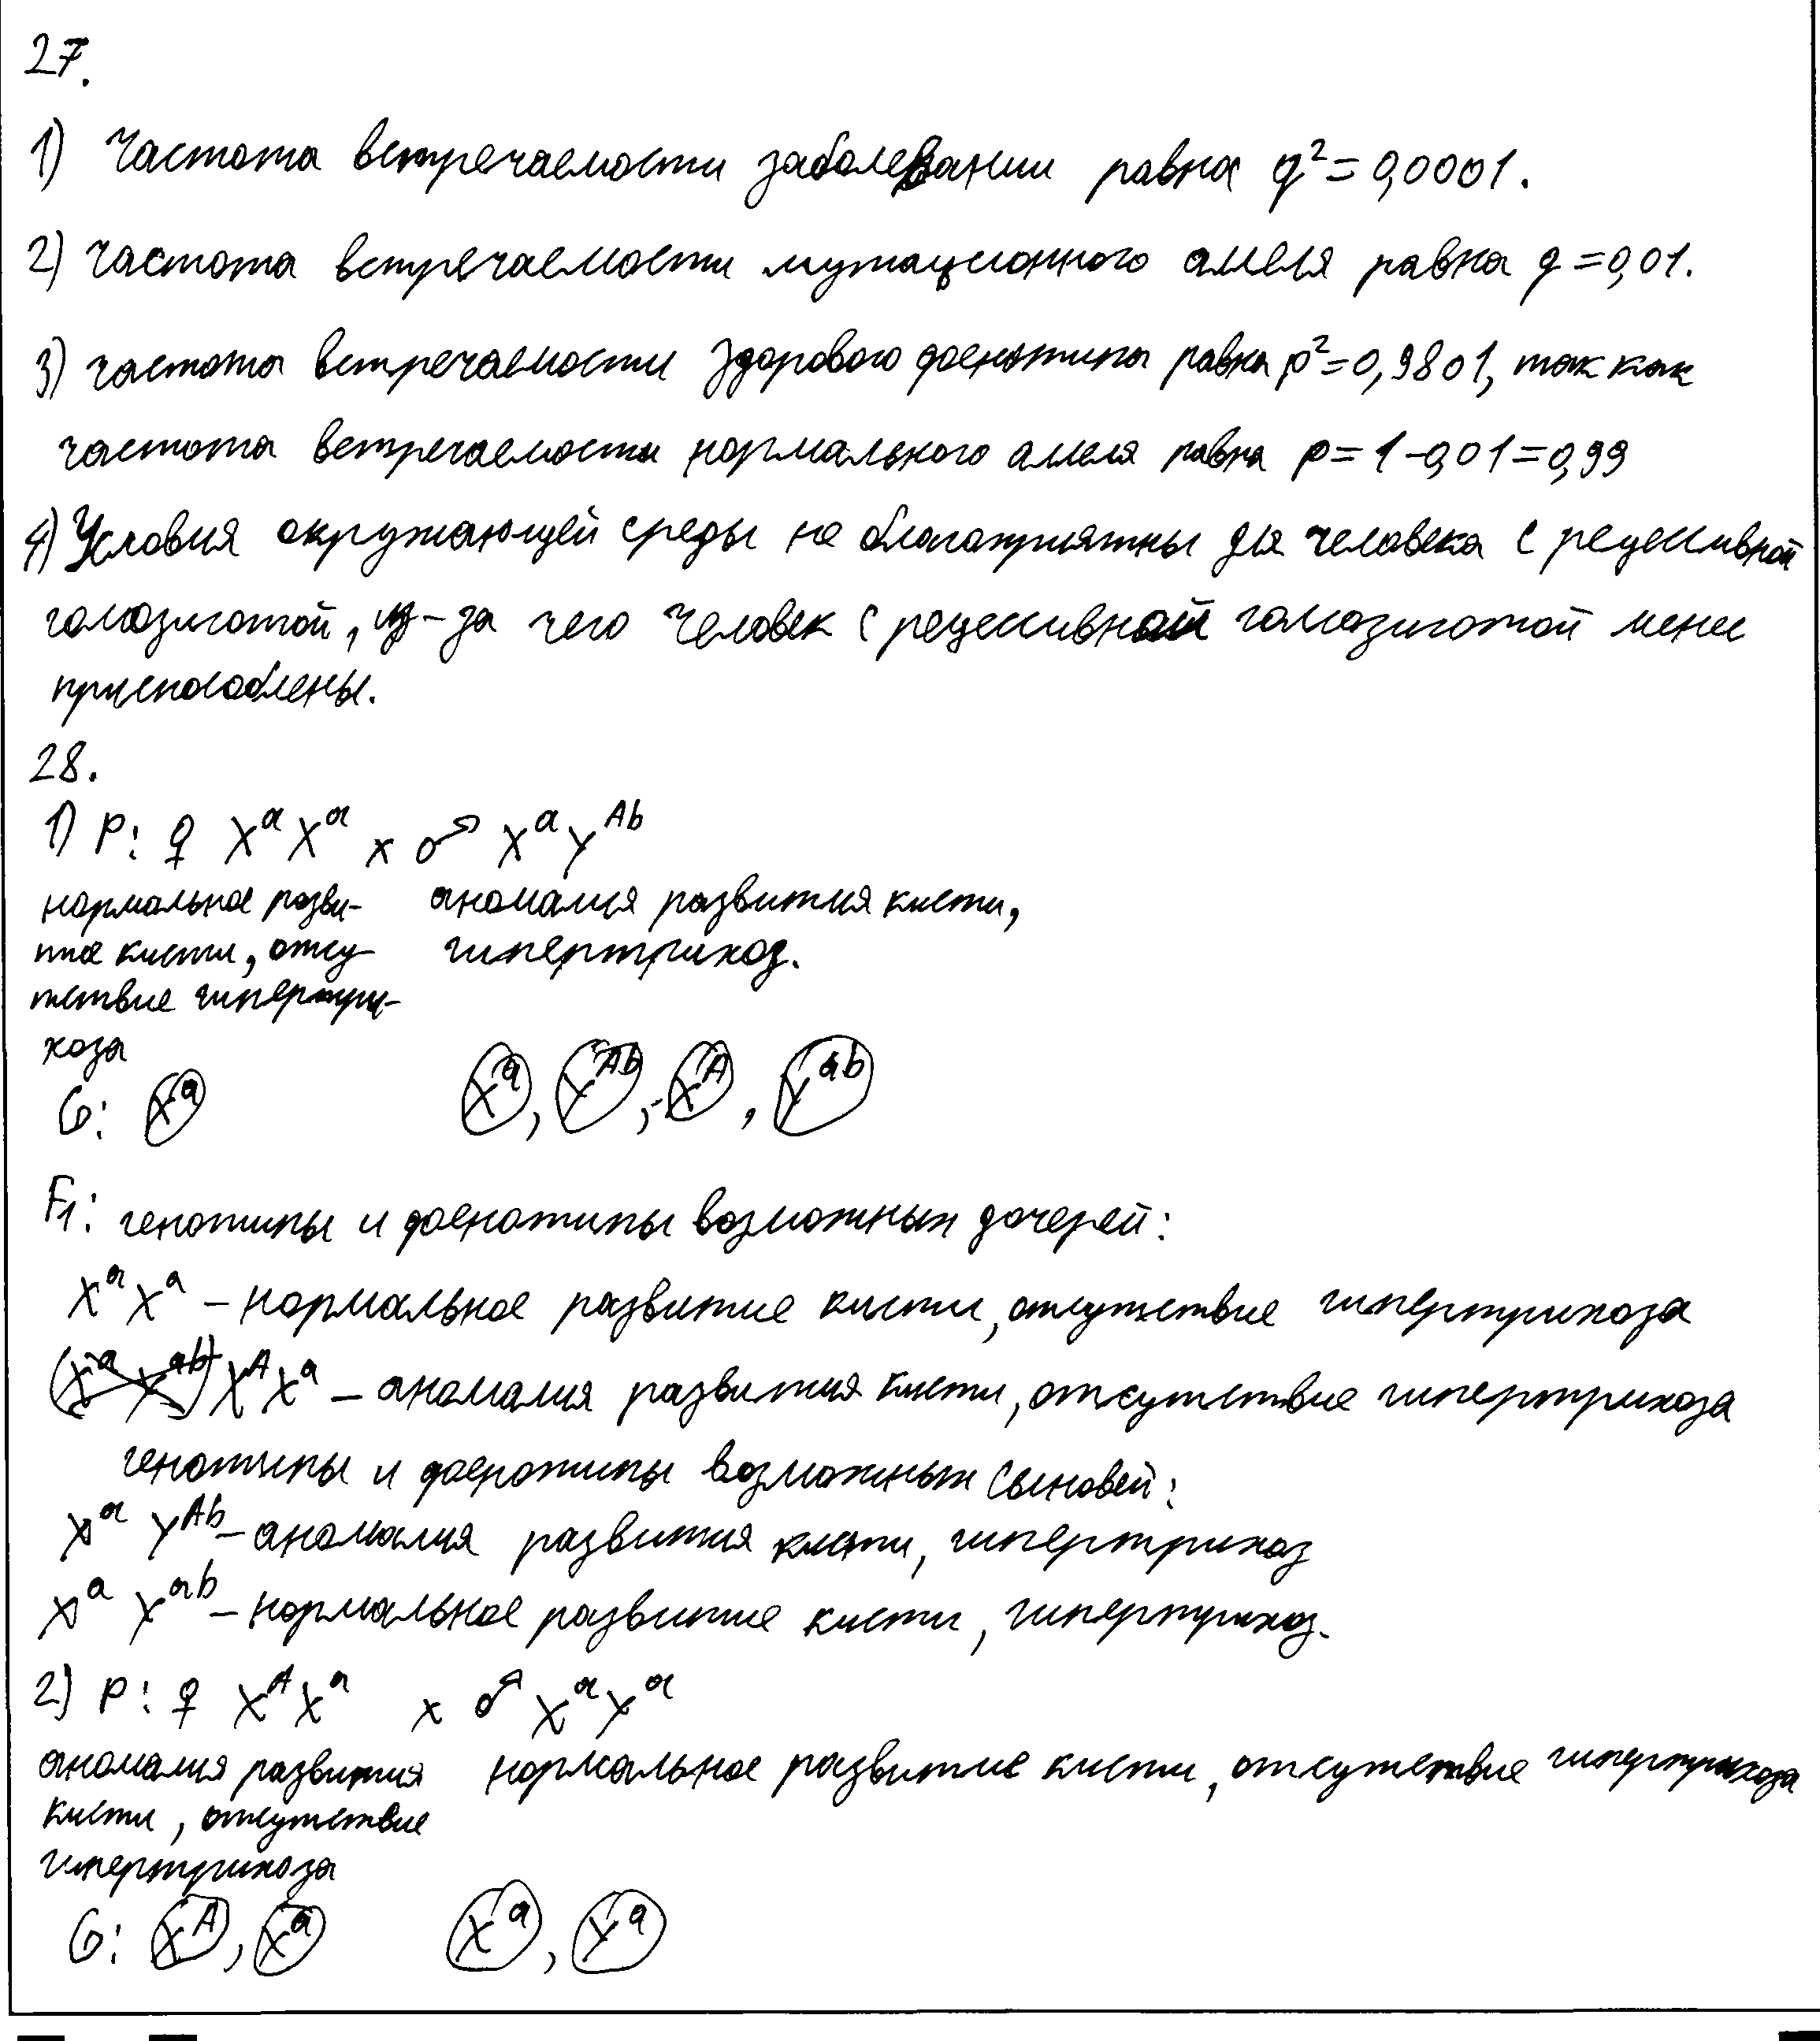 27.
1) Частота встречаемости заболевании равна q²=0,0001.
2) Частота встречаемости мутационного аллеля равна q=0,01.
3) частота встречаемости здорового фенотипа равна p²=0,9801, так как
частота встречаемости нормального аллеля равна p=1-0,01=0,99
4) Условия окружающей среды не благоприятны для человека с рецессивной
гомозиготой, из-за чего человек с рецессивной гомозиготой менее
приспособлены.
28.
1) P: ♀ XᵃXᵃ x ♂ XᵃYᴬᵇ
нормальное разви- аномалия развития кисти,
тие кисти, отсу- гипертрихоз.
тствие гипертри-
хоза
G: Xᵃ Xᵃ, Yᴬᵇ, Xᴬ, Yᵃᵇ
F₁: генотипы и фенотипы возможных дочерей:
XᵃXᵃ – нормальное развитие кисти, отсутствие гипертрихоза
XᴬXᵃ – аномалия развития кисти, отсутствие гипертрихоза
генотипы и фенотипы возможных сыновей:
Xᵃ Yᴬᵇ – аномалия развития кисти, гипертрихоз
Xᵃ Yᵃᵇ – нормальное развитие кисти, гипертрихоз.
2) P: ♀ XᴬXᵃ x ♂ XᵃYᵃ
аномалия развития нормальное развитие кисти, отсутствие гипертрихоза
кисти, отсутствие
гипертрихоза
G: Xᴬ, Xᵃ Xᵃ, Yᵃ